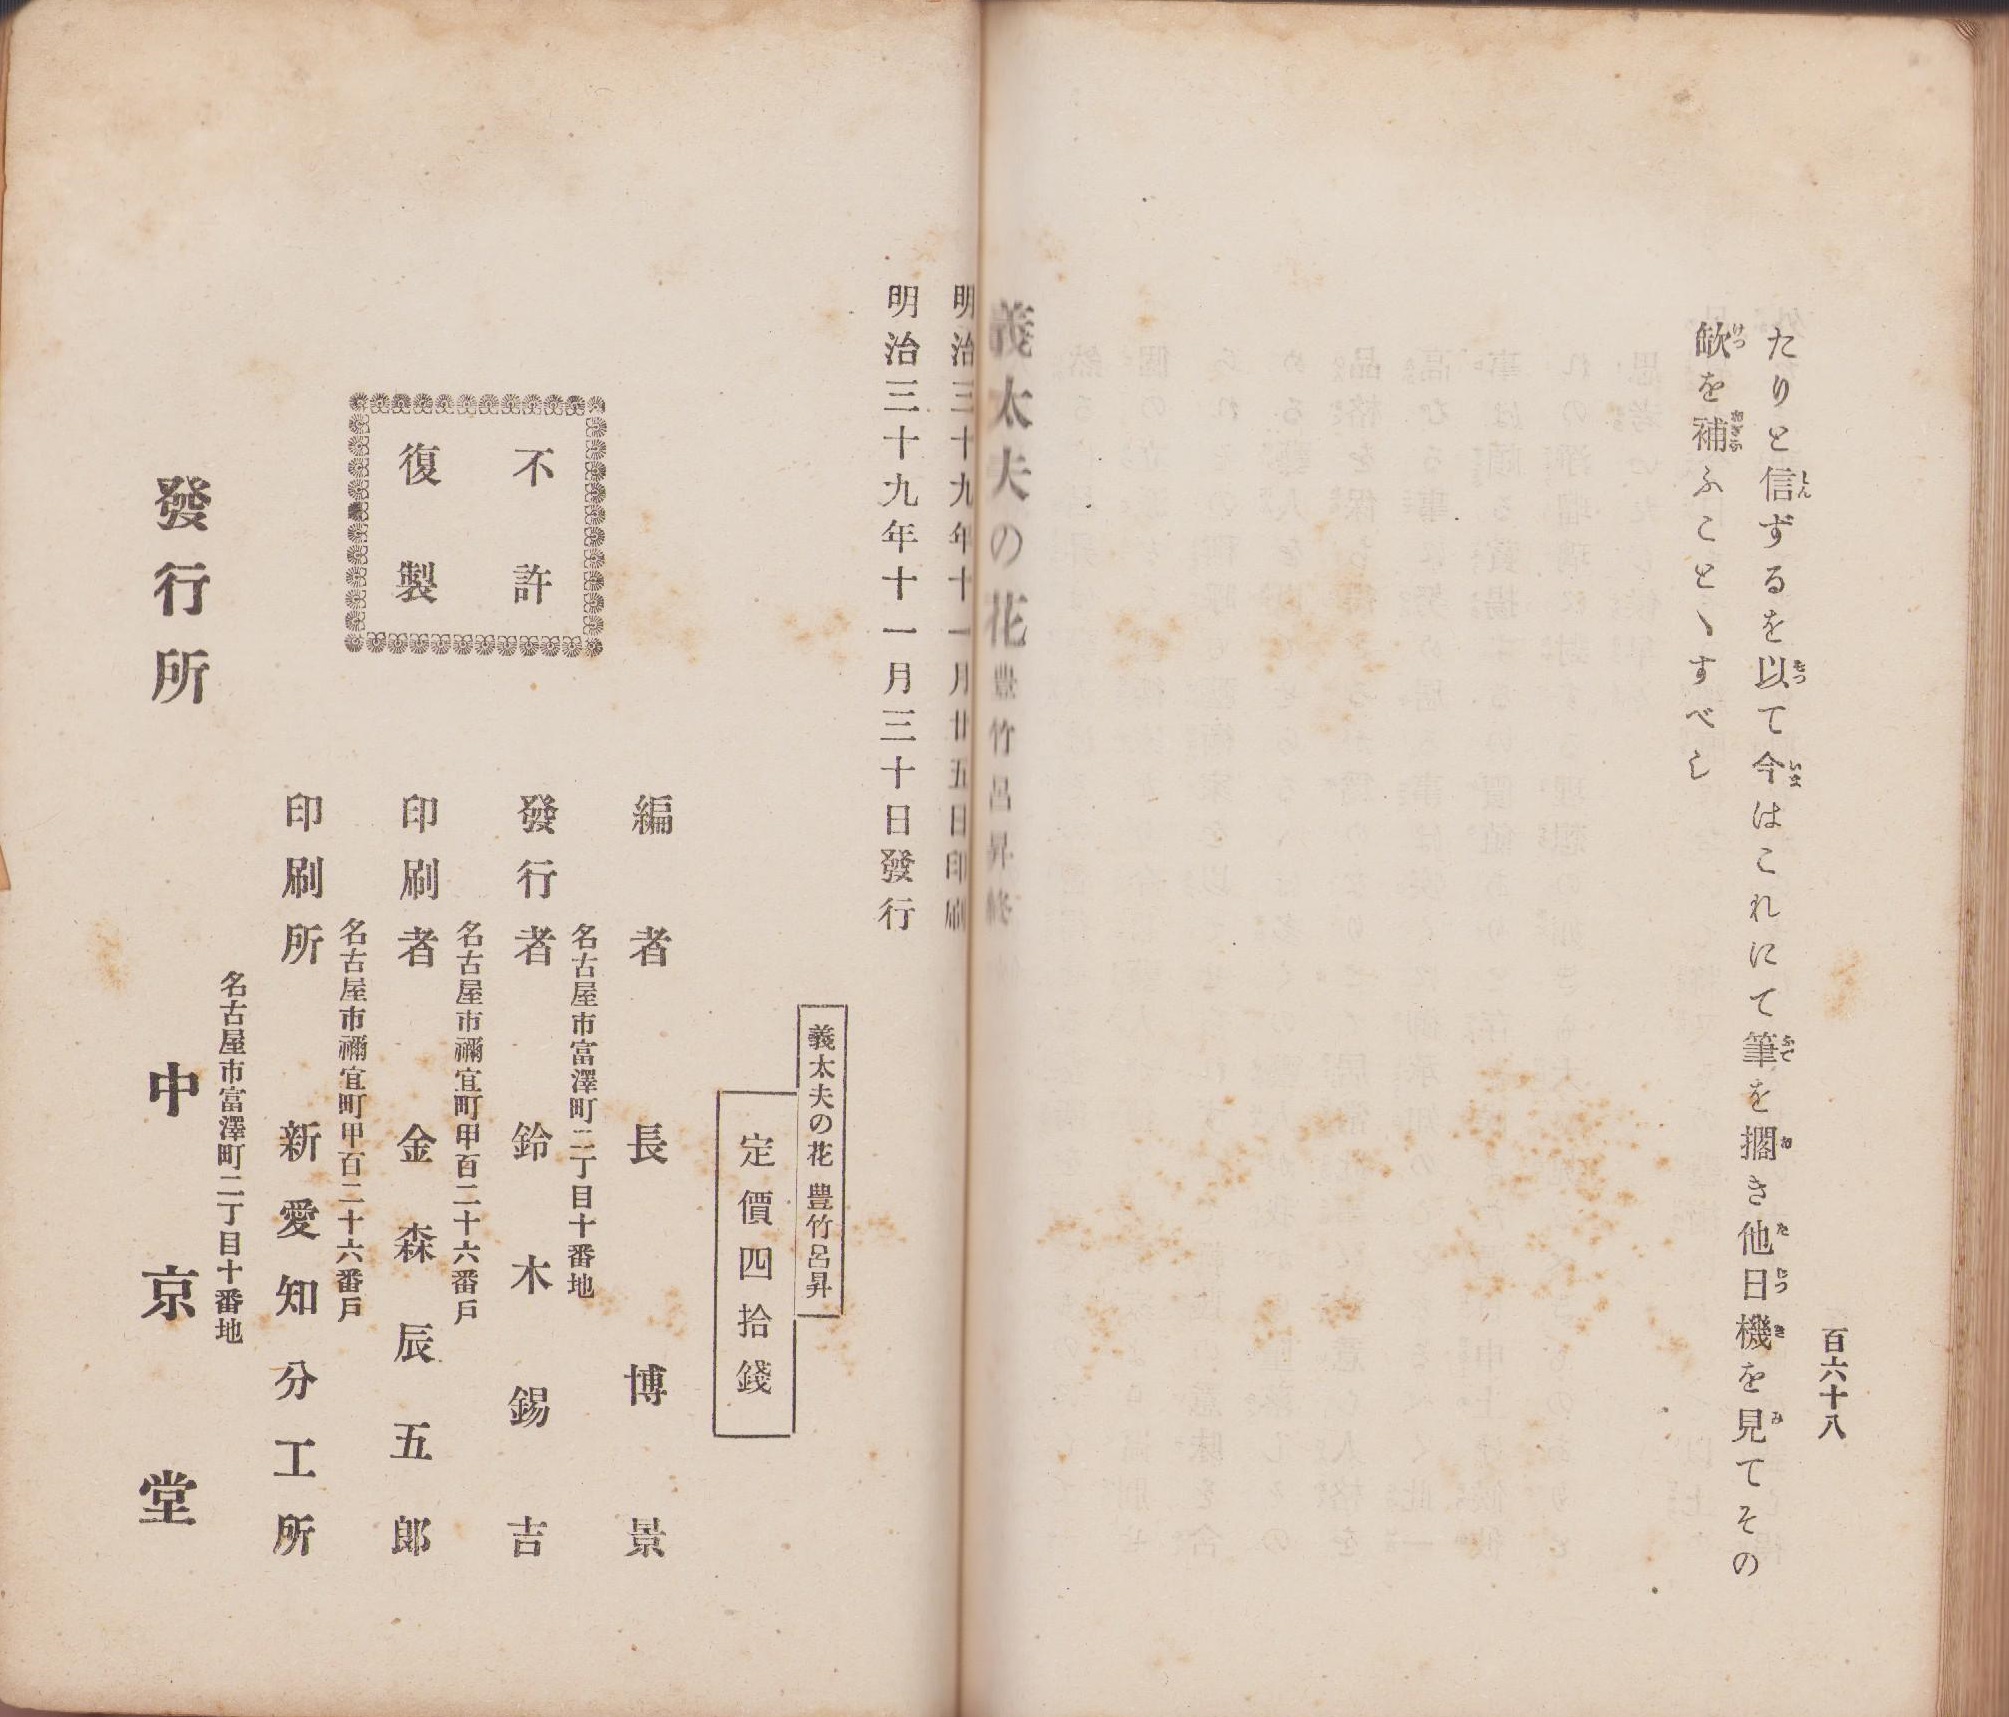 百六十八
たりと信ずるを以て今はこれにて筆を擱き他日機を見てその
歃を補ふことゝすべし
義太夫の花 豊竹呂昇 終
明治三十九年十一月廿五日印刷
明治三十九年十一月三十日發行
義太夫の花 豊竹呂昇
定價四拾錢
編者 長博景
名古屋市富澤町二丁目十番地
發行者 鈴木錫吉
名古屋市禰宜町甲百二十六番戸
印刷者 金森辰五郎
名古屋市禰宜町甲百二十六番戸
印刷所 新愛知分工所
不許
復製
名古屋市富澤町二丁目十番地
發行所 中京堂